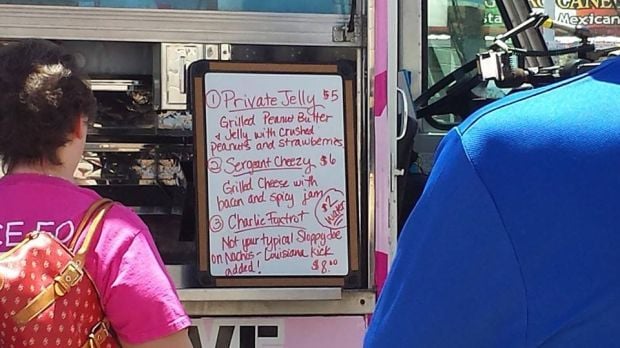 ① Private Jelly $5
Grilled Peanut Butter
& Jelly with crushed
peanuts and strawberries
② Sergeant Cheezy $6
Grilled Cheese with
bacon and spicy jam
③ Charlie Foxtrot
$2
Water
Not your typical Sloppy Joe
on Nachos - Louisiana kick
added! $8.00
Mexican
CE FO
VE